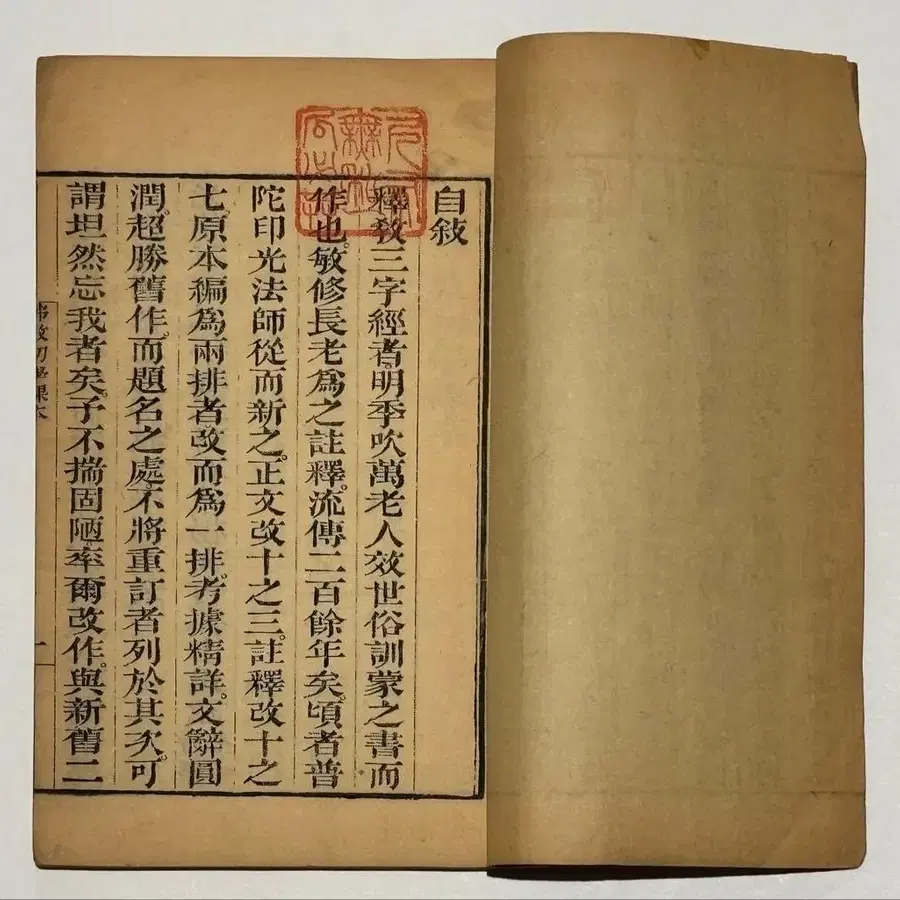 自敍
釋教三字經者。明季吹萬老人效世俗訓蒙之書而
作也。敏修長老爲之註釋。流傳二百餘年矣。頃者普
陀印光法師從而新之。正文改十之三。註釋改十之
七。原本編爲兩排者改而爲一排。考據精詳。文辭圓
潤。超勝舊作。而題名之處。不將重訂者列於其次。可
謂坦然忘我者矣。予不揣固陋。率爾改作。與新舊二